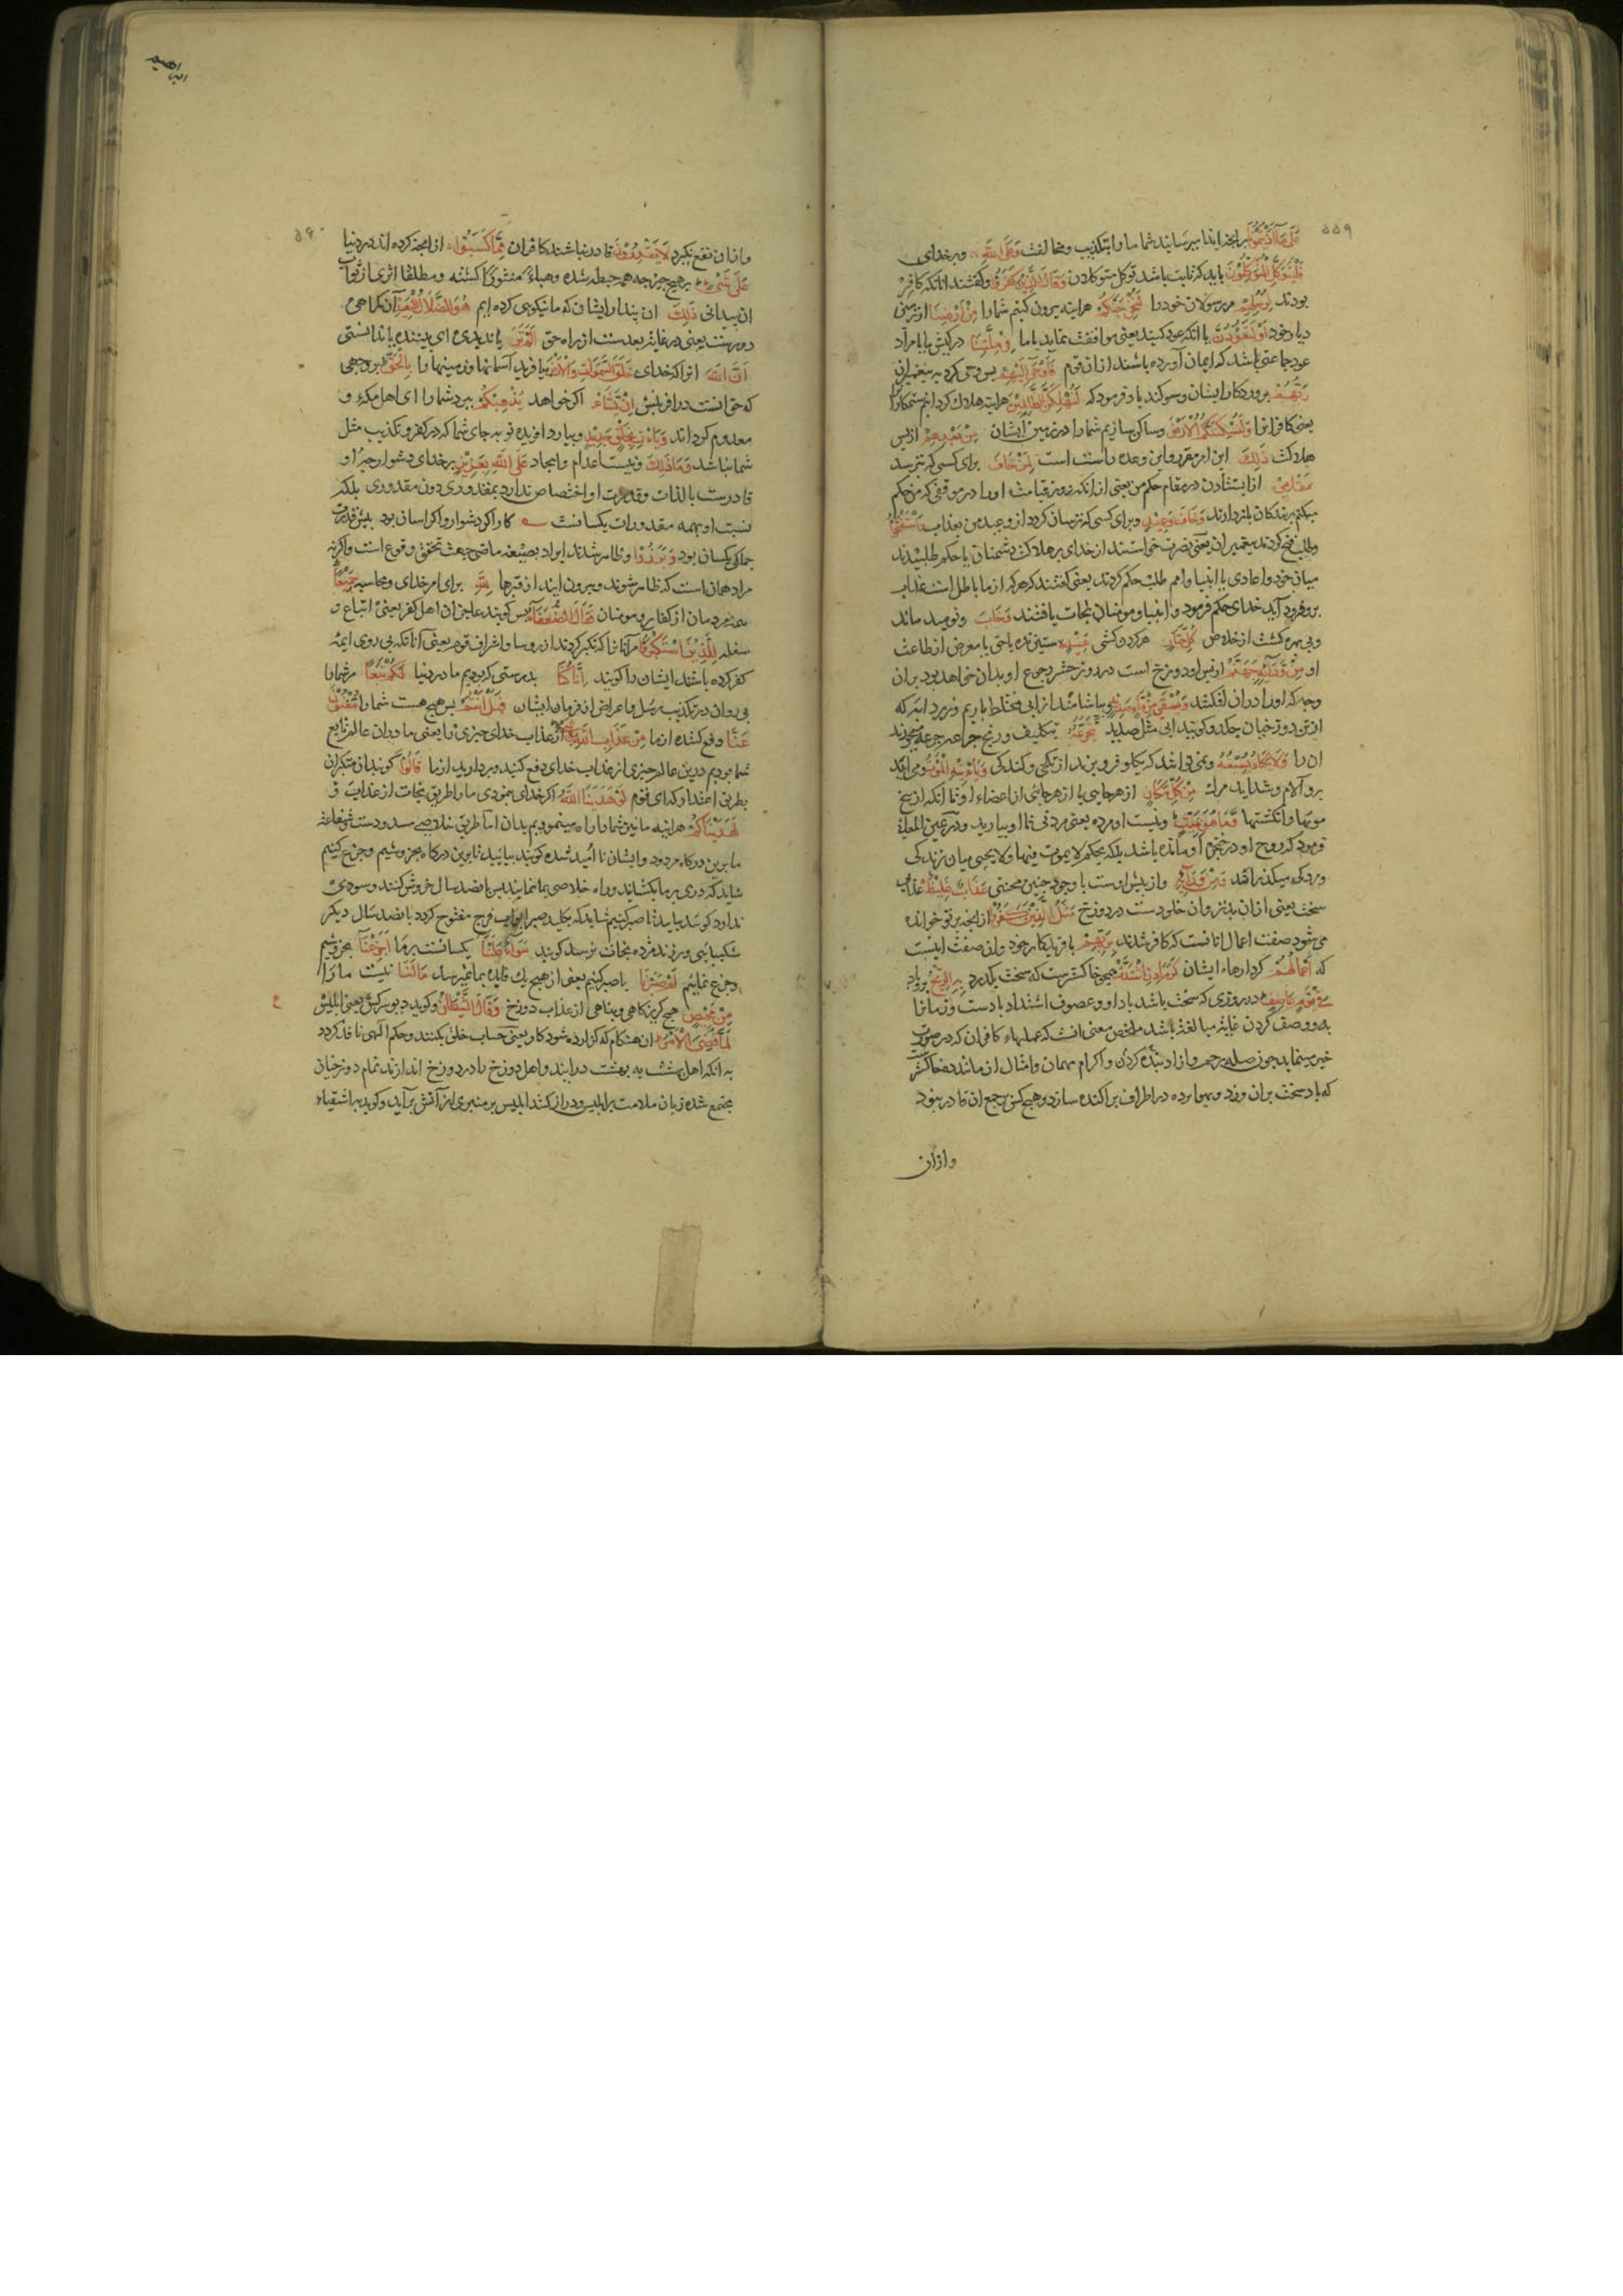 ۵۵۹
عَلَى مَا آذَيْتُمُونَا بر انجه ایذا میرسانید شما ما را بتکذیب و مخالفت وَعَلَى اللَّهِ و بر خدای
فَلْيَتَوَكَّلِ الْمُتَوَكِّلُونَ باید که ثابت باشد توکل متوکلان وَقَالَ الَّذِينَ كَفَرُوا و گفتند انانکه کافر
بودند لِرُسُلِهِمْ مر رسولان خود را لَنُخْرِجَنَّكُمْ هراینه بیرون کنیم شما را مِنْ أَرْضِنَا از زمین
دیار خود أَوْ لَتَعُودُنَّ یا انکه عود کنید یعنی موافقت نمایید با ما فِي مِلَّتِنَا در کیش ما یا مراد
عود جماعتی باشد که ایمان آورده باشند از ان قوم فَأَوْحَى إِلَيْهِمْ پس وحی کرد به پیغمبران
رَبُّهُمْ پروردکار ایشان و سوکند یاد فرمود که لَنُهْلِكَنَّ الظَّالِمِينَ هراینه هلاک کردانم ستمکارانرا
یعنی کافرانرا وَلَنُسْكِنَنَّكُمُ الْأَرْضَ و ساکن سازیم شما را در زمین ایشان مِنْ بَعْدِهِمْ از پس
هلاکت ذَلِكَ این امر مقرر و این وعده راست است لِمَنْ خَافَ برای کسی که بترسد
مَقَامِي از ایستادن در مقام حکم من یعنی از انکه روز قیامت او را در موقفی که من حکم
میکنم بر بندکان بازدارند وَخَافَ وَعِيدِ و برای کسی که ترسان کردد از وعید من بعذاب وَاسْتَفْتَحُوا
و طلب فتح کردند پیغمبران یعنی نصرت خواستند از خدای بر هلاکت دشمنان یا حکم طلبیدند
میان خود و اعادی یا انبیا و امم طلب حکم کردند یعنی گفتند که هر که از ما باطل است عذاب
برو فرود آید خدای حکم فرمود و انبیا و مومنان نجات یافتند وَخَابَ و نومید ماند
و بی بهره گشت از خلاص كُلُّ جَبَّارٍ هر گردن کشی عَنِيدٍ ستیزنده با حق یا معرض از طاعت
او مِنْ وَرَائِهِ جَهَنَّمُ از پس او دوزخ است در روز حشر رجوع او بدان خواهد بود بران
وجه که او را دران افکنند وَيُسْقَى مِنْ مَاءٍ صَدِيدٍ و بیاشامانند از ابی مختلط با ریم و زرداب که
از تن دوزخیان چکد و گویند ابی مثل صدید يَتَجَرَّعُهُ بتکلیف و رنج جرعه جرعه میخورند
ان را وَلَا يَكَادُ يُسِيغُهُ و نمی باشد که بگلو فرو برند از تلخی و کندکی وَيَأْتِيهِ الْمَوْتُ و می اید
برو آلام و شداید مرک مِنْ كُلِّ مَكَانٍ از هر جایی یا از هر جائی از اعضاء او تا انکه از بیخ
مویها و انکشتها وَمَا هُوَ بِمَيِّتٍ و نیست او مرده یعنی مردنی تا او بیارید و در عین المعانی
فرمود که روح او در حنجرۀ او مانده باشد بلکه بحکم لا یموت فیها ولا یحیی میان زندکی
و مردکی میکذراند وَمِنْ وَرَائِهِ و از پیش اوست با وجود چنین محنتی عَذَابٌ غَلِيظٌ عذاب
سخت یعنی از ان بدتر وان خلودست در دوزخ مَثَلُ الَّذِينَ كَفَرُوا از انجه بر تو خوانده
می شود صفت اعمال انانست که کافر شدند بِرَبِّهِمْ بافریدکار خود و ان صفت اینست
که أَعْمَالُهُمْ کردارهاء ایشان كَرَمَادٍ اشْتَدَّتْ همچو خاکسترست که سخت بگذرد بِهِ الرِّيحُ برو باد
فِي يَوْمٍ عَاصِفٍ در روزی که سخت باشد باد او و عصوف اشتداد بادست و زمانرا
بدو وصف کردن غایت مبالغت باشد ملخص معنی انست که عملهاء کافران که در صورت
خیر مینماید چون صله رحم و ازاد بنده کردن و اکرام مهمان و امثال ان مانند خاکستر
که باد سخت بران وزد و بهوا برده در اطراف پراکنده سازد و هیچ کس بر جمع ان قادر نبود
و ازان
ابراهیم
۵۶۰
و ازان نفع نکیرد لَا يَقْدِرُونَ قادر نباشند کافران مِمَّا كَسَبُوا از انجه کرده اند در دنیا
عَلَى شَيْءٍ بر هیچ چیز چه همه حبطه شده و هباءً منثورا گشته و مطلقا اثری از ثواب
ان پیدا نی ذَلِكَ ان پندار ایشان که ما نیکویی کرده ایم هُوَ الضَّلَالُ الْبَعِيدُ آن گمراهی
دورست یعنی در غایت بعد ست از راه حق أَلَمْ تَرَ یا ندیدی ای بیننده یا ندانستی
أَنَّ اللَّهَ انرا که خدای خَلَقَ السَّمَوَاتِ وَالْأَرْضَ بیافرید آسمانها و زمینها را بِالْحَقِّ بر وجهی
که حق انست در افرینش إِنْ يَشَأْ اکر خواهد يُذْهِبْكُمْ ببرد شما را ای اهل مکه و
معدوم کرداند وَيَأْتِ بِخَلْقٍ جَدِيدٍ و بیارد افریده نو به جای شما که در کفر و تکذیب مثل
شما نباشد وَمَا ذَلِكَ و نیست اعدام و ایجاد عَلَى اللَّهِ بِعَزِيزٍ بر خدای دشوار چرا او
قادرست بالذات و قدرت او اختصاص ندارد بمقدوری دون مقدوری بلکه
نسبت او بهمه مقدورات یکسانست کار اکر دشوار و اکر اسان بود پیش قدرت
جملگی یکسان بود وَبَرَزُوا و ظاهر شدند ایراد بصیغه ماضی جهت تحقق وقوع است و اکرنه
مراد همان است که ظاهر شوند و بیرون ایند از قبرها لِلَّهِ برای امر خدای و محاسبه جَمِيعًا
همه مردمان از کفار و مومنان فَقَالَ الضُّعَفَاءُ پس گویند عاجزان اهل کفر یعنی اتباع و
سفله لِلَّذِينَ اسْتَكْبَرُوا مر آنانرا که تکبر کردند از روسا و اشراف قوم یعنی آنانکه پی روی ایمه
کفر کرده باشند ایشان را گویند إِنَّا كُنَّا بدرستی که بودیم ما در دنیا لَكُمْ تَبَعًا مر شما را
پی روان در تکذیب رسل و اعراض از فرمان ایشان فَهَلْ أَنْتُمْ پس هیچ هست شما را مُغْنُونَ
عَنَّا دفع کننده از ما مِنْ عَذَابِ اللَّهِ مِنْ شَيْءٍ از عذاب خدای چیزی را یعنی ما دران عالم تابع
شما بودیم درین عالم چیزی از عذاب خدای دفع کنید و بردارید از ما قَالُوا گویند ان متکبران
بطریق اعتذار که ای قوم لَوْ هَدَانَا اللَّهُ اکر خدای بنمودی ما را طریق نجات از عذاب
لَهَدَيْنَاكُمْ هراینه ما نیز شما را راه مینمودیم بدان اما طریق خلاصی مسدودست و شفاعت
ما برین درکاه مردود و ایشان نا امید شده گویند بیایید تا برین درکاه بخروشیم و جزع کنیم
شاید که دری بر ما بکشایند و راه خلاصی بما نمایند پس پانصد سال خروش کنند و سودی
ندارد گویند بیایید تا صبر کنیم شاید که بکلید صبر ابواب فرج مفتوح کردد پانصد سال دیکر
شکیبایی ورزند مژده نجات نرسد گویند سَوَاءٌ عَلَيْنَا یکسانست بر ما أَجَزِعْنَا بخروشیم
و جزع نماییم أَمْ صَبَرْنَا یا صبر کنیم یعنی از هیچ یک فایده بما نمیرسد مَا لَنَا نیست ما را
مِنْ مَحِيصٍ هیچ گریزکاهی و پناهی از عذاب دوزخ وَقَالَ الشَّيْطَانُ و گوید دیو سرکش یعنی ابلیس
ع
لَمَّا قُضِيَ الْأَمْرُ ان هنکام که گزارده شود کار یعنی حساب خلق بکنند و حکم الهی نافذ کردد
به انکه اهل بهشت به بهشت درایند و اهل دوزخ را در دوزخ اندازند تمام دوزخیان
مجتمع شده زبان ملامت بر ابلیس دراز کنند ابلیس بر منبری از آتش برآید و گوید به اشقیاء